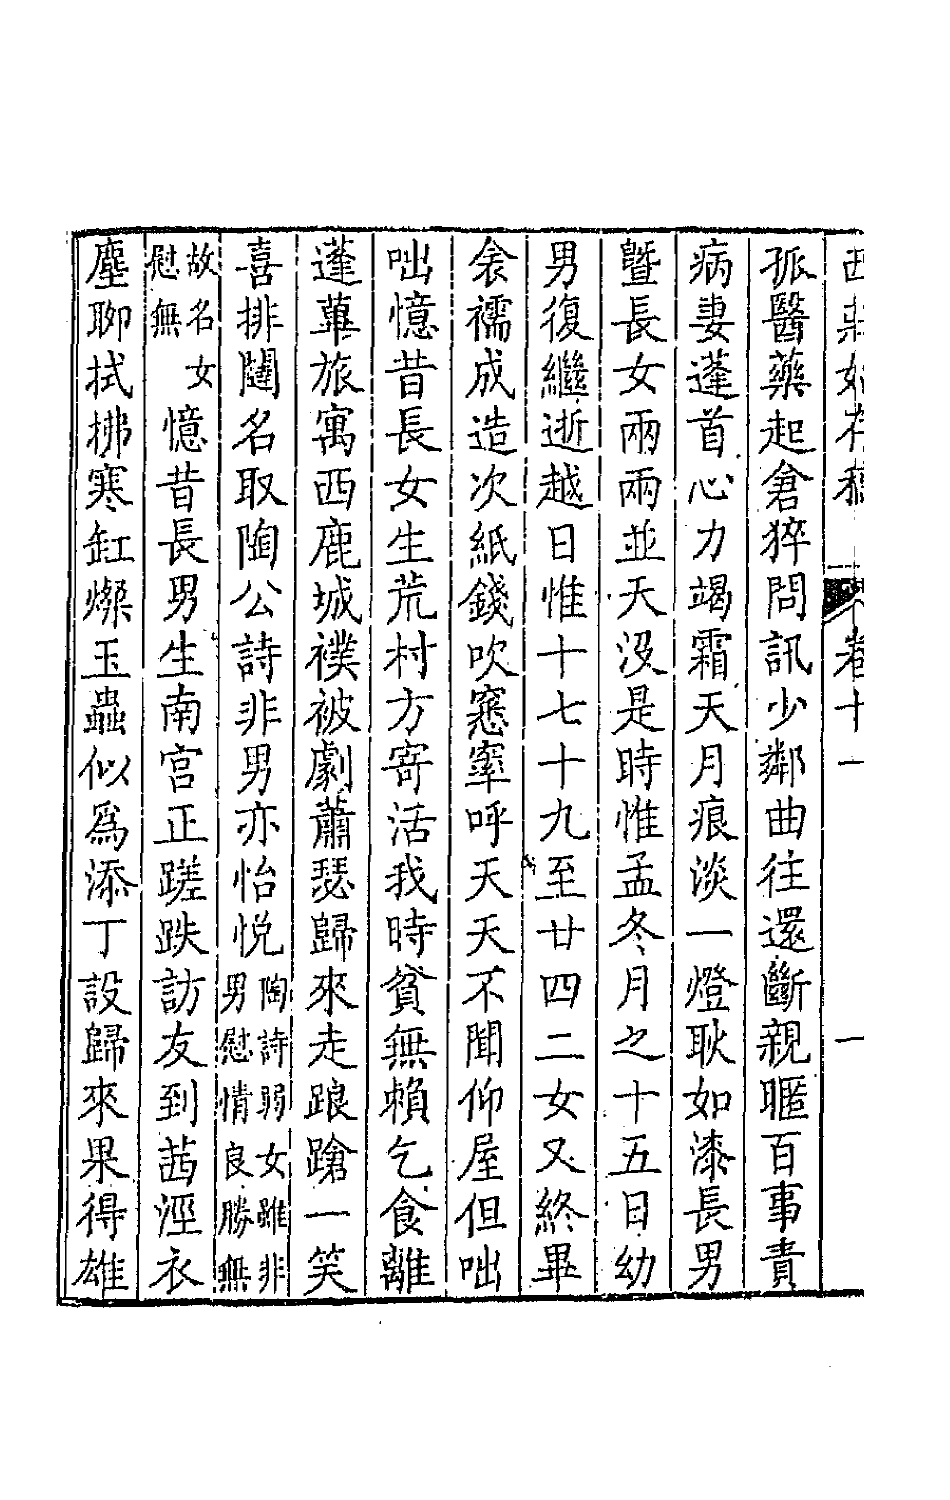 西莊始存稿 卷十一 一
孤醫藥起倉猝問訊少鄰曲往還斷親暱百事責
病妻蓬首心力竭霜天月痕淡一燈耿如漆長男
曁長女兩兩並夭没是時惟孟冬月之十五日幼
男復繼逝越日惟十七十九至廿四二女又終畢
衾襦成造次紙錢吹窸窣呼天天不聞仰屋但咄
咄憶昔長女生荒村方寄活我時貧無賴乞食離
蓬蓽旅寓西鹿城襆被劇蕭瑟歸來走踉蹌一笑
喜排闥名取陶公詩非男亦怡悅陶詩弱女雖非男慰情良勝無
故名女慰無憶昔長男生南宫正蹉跌訪友到茜涇衣
塵聊拭拂寒缸燦玉蟲似爲添丁設歸來果得雄